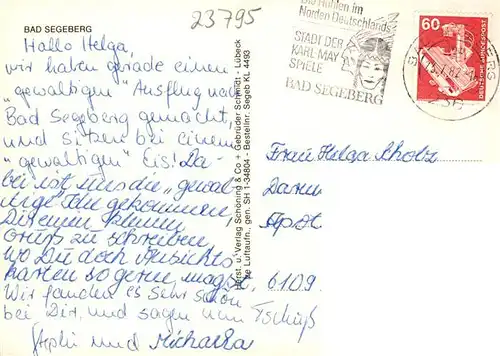 23795
BAD SEGEBERG
Hallo Helga,
wir haben gerade einen
"gewaltigen" Ausflug nach
Bad Segeberg gemacht
und sitzen bei einem
"gewaltigen" Eis! Da-
bei ist uns die "gewal-
tige" Idee gekommen
Dir einen kleinen
Gruß zu schreiben,
wo Du doch Ansichts-
karten so gerne magst.
Wir fanden es sehr schön
bei Dir, und sagen nun Tschüß
Stephi und Michaela
Die Höhlen im
Norden Deutschlands
STADT DER
KARL MAY
SPIELE
BAD SEGEBERG
60
DEUTSCHE BUNDESPOST
Verlag Schöning & Co + Gebrüder Schmidt - Lübeck
Luftaufn., gen. SH 1-34804 - Bestellnr. Segeb KL 4493
Frau Helga Scholz
6109